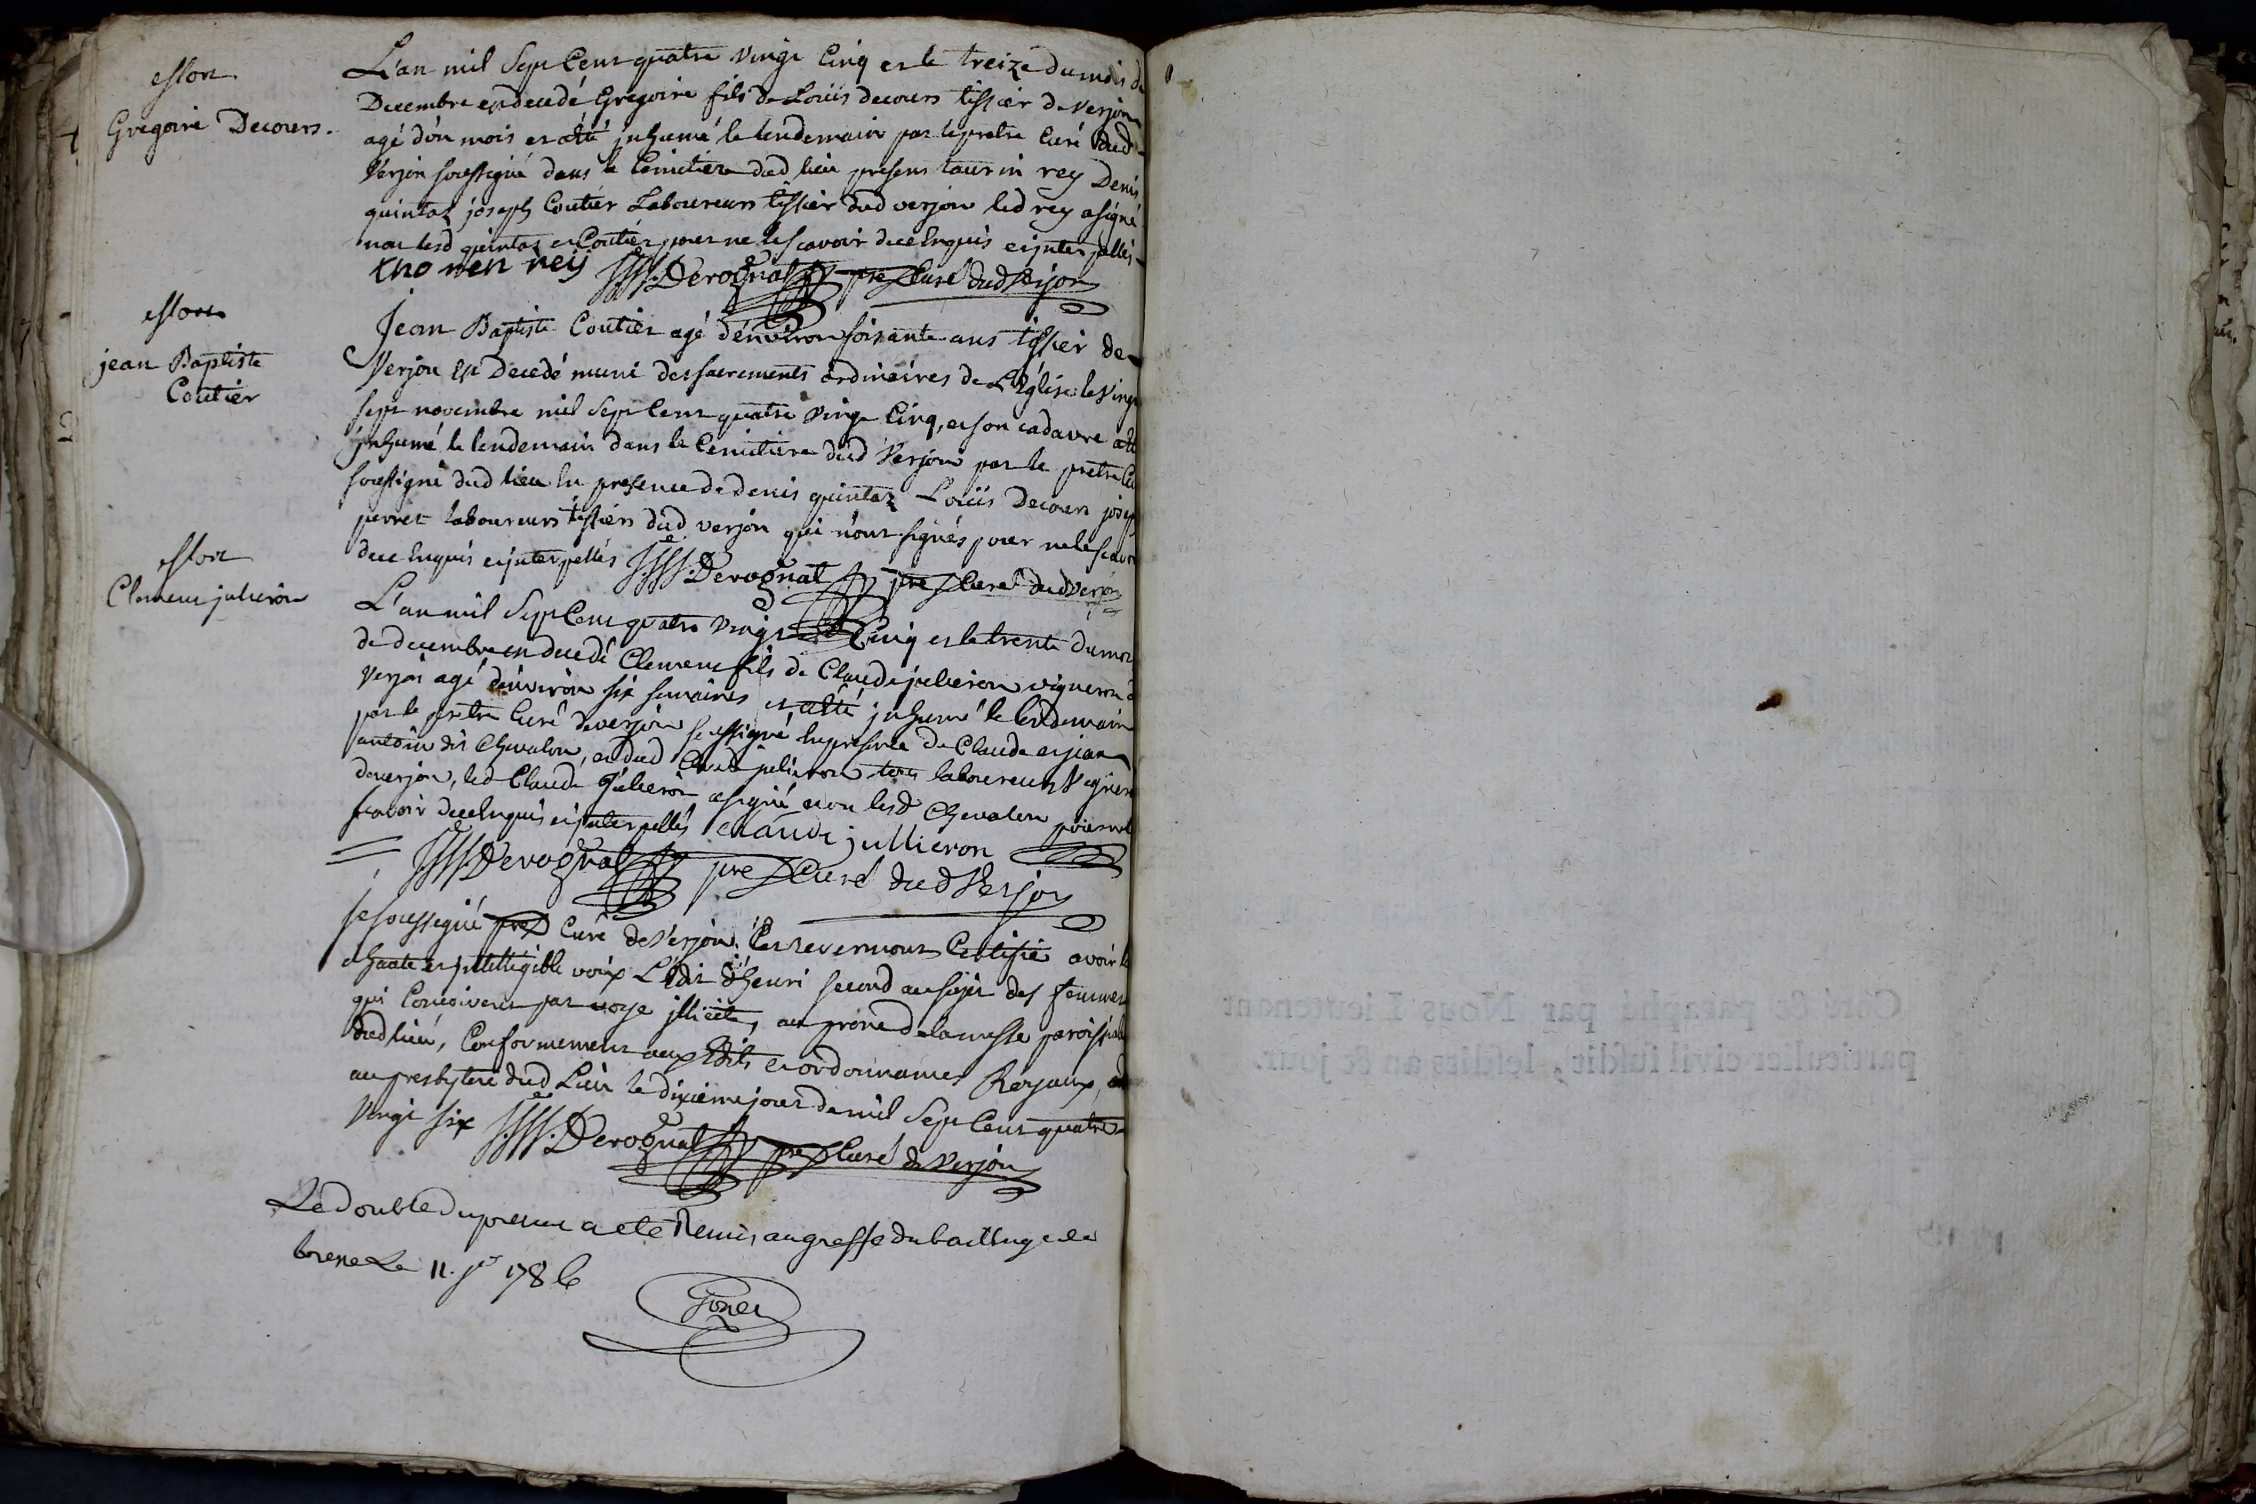 L'an mil Sept Cent quatre vingt Cinq et le treize du mois de
Decembre est decedé Gregoire fils de Loüis decours tissier de verjon
agé d'un mois et a été inhumé le lendemain par le pretre Curé dud
Verjon soussigné dans le Cemitiere dud lieu presens taurin rey Denis
quintaz joseph Coutier Laboureurs tissier dud verjon led rey a signé
non lesd quintaz et Coutier pour ne le scavoir de ce Enquis et interpellés
tho ren reij Derognat pre Curé dud Verjon
esson
Gregoire Decours.
Jean Baptiste Coutier agé d'environ soixante ans tissier de
Verjon Est Decedé muni des sacrements ordinaires de L'Eglise le vingt
sept novembre mil Sept Cent quatre vingt Cinq, et son cadavre a été
inhumé le lendemain dans le Cemitiere dud Verjon par le pretre Cu
soussigné dud lieu En presence de denis quintaz Loüis Decours joseph
perret laboureurs tissiers dud verjon qui n'ont signés pour ne le scavoir
de ce Enquis et interpellés Derognat pre Curé dud Verjon
esson
jean Baptiste
Coutier
L'an mil Sept Cent quatre vingt Cinq et le trente du mois
de decembre est decedé Clement fils de Claude julieron vigneron d
Verjon agé d'environ six semaines et a été inhumé le lendemain
par le pretre Curé de verjon soussigné En presence de Claude et jean
antoine dit Chevalon, et dud Claude julieron tous laboureurs Vigneron
de verjon, led Claude Julieron a signé et non lesd Chevalon pour ne le
scavoir de ce Enquis et interpellés claude jullieron
Derognat pre Curé dud Verjon
esson
Clement julieron
Je soussigné pre Curé de Verjon En revermont Certifie avoir lu
a haute et intelligible voix L'edit d'henri second au sujet des femmes
qui Conçoivent par voye illicite, au prone de la messe paroissiale
dud lieu, Conformement aux Edits et ordonnances Royaux,
au presbytere dud Lieu le dixieme jour de mil Sept Cent quatre
Vingt six Derognat pre Curé de Verjon
Le double du present a eté Remis au greffe du bailliage de
bresse Le 11. jer 1786
Coté & paraphé par Nous Lieutenant
particulier civil susdit, lesdits an & jour.